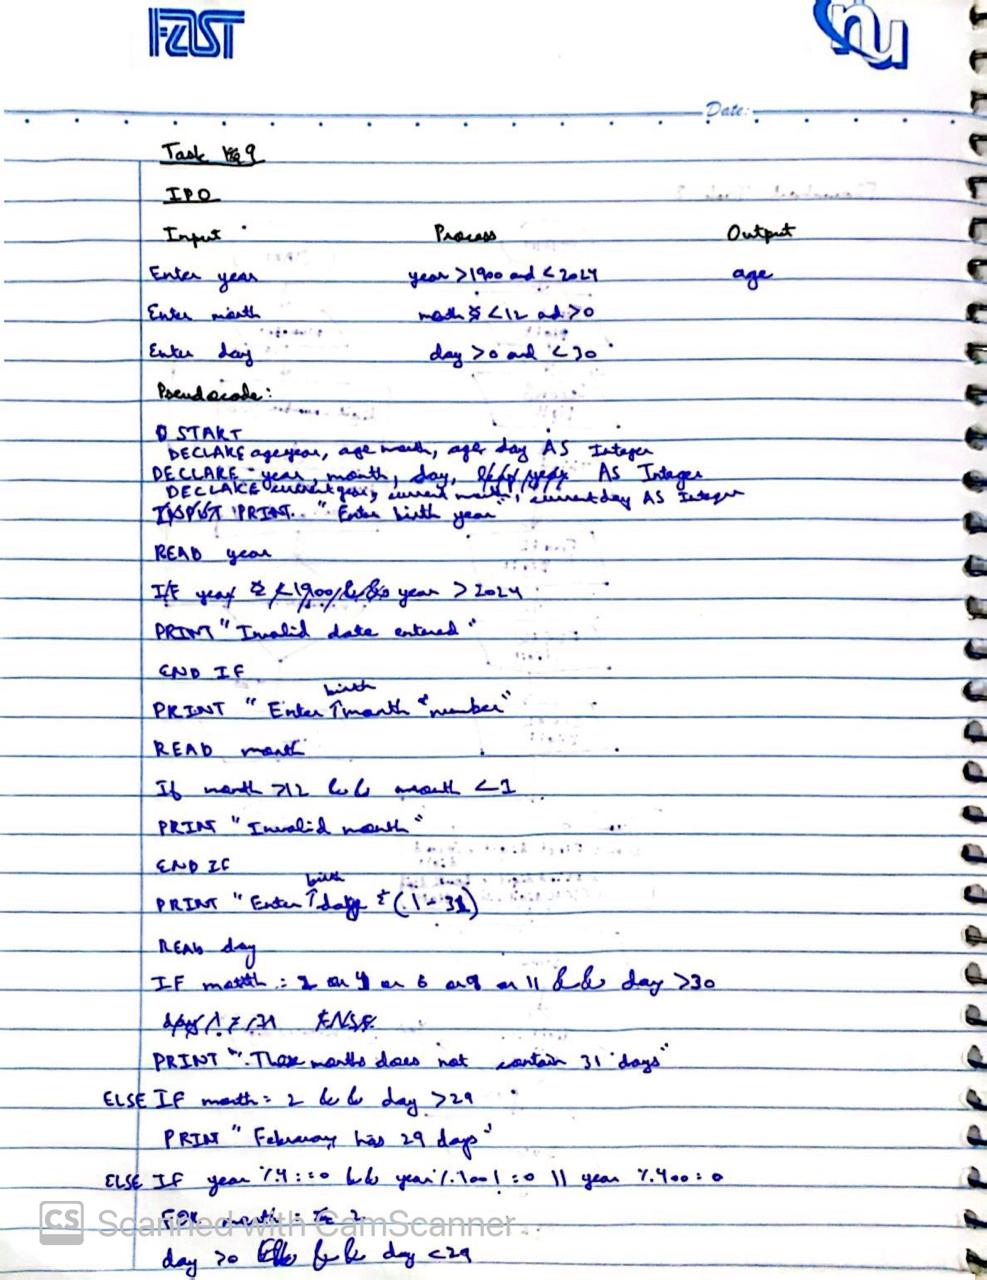 FAST
nu
Date:
Task 9
IPO
Input Process Output
Enter year year >1900 and <2024 age
Enter month month <12 ad >0
Enter day day >0 and <30
Pseudocode:
START
DECLARE age year, age month, age day AS Integer
DECLARE year, month, day, AS Integer
DECLARE current year, current month, current day AS Integer
PRINT "Enter birth year"
READ year
IF year <1900 && year > 2024
PRINT "Invalid date entered"
END IF
PRINT "Enter birth month number"
READ month
If month >12 && month <1
PRINT "Invalid month"
END IF
PRINT "Enter birth date (1-31)
READ day
IF month = 2 or 4 or 6 or 9 or 11 && day >30
PRINT "These months does not contain 31 days"
ELSE IF month = 2 && day >29
PRINT "February has 29 days"
ELSE IF year %4==0 && year %100!=0 || year %400=0
FOR month = 2
day >0 && day <29
CS Scanned with CamScanner